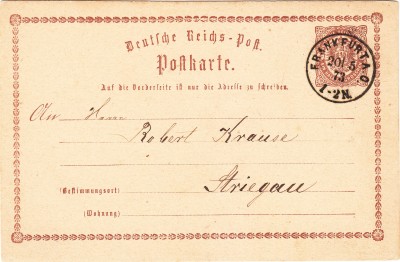 Deutsche Reichs-Post.
Postkarte.
FRANKFURT A. O.
20 5
73
1-2N.
Auf die Vorderseite ist nur die Adresse zu schreiben.
An Herrn
Robert Krause
Striegau
(Bestimmungsort)
(Wohnung)